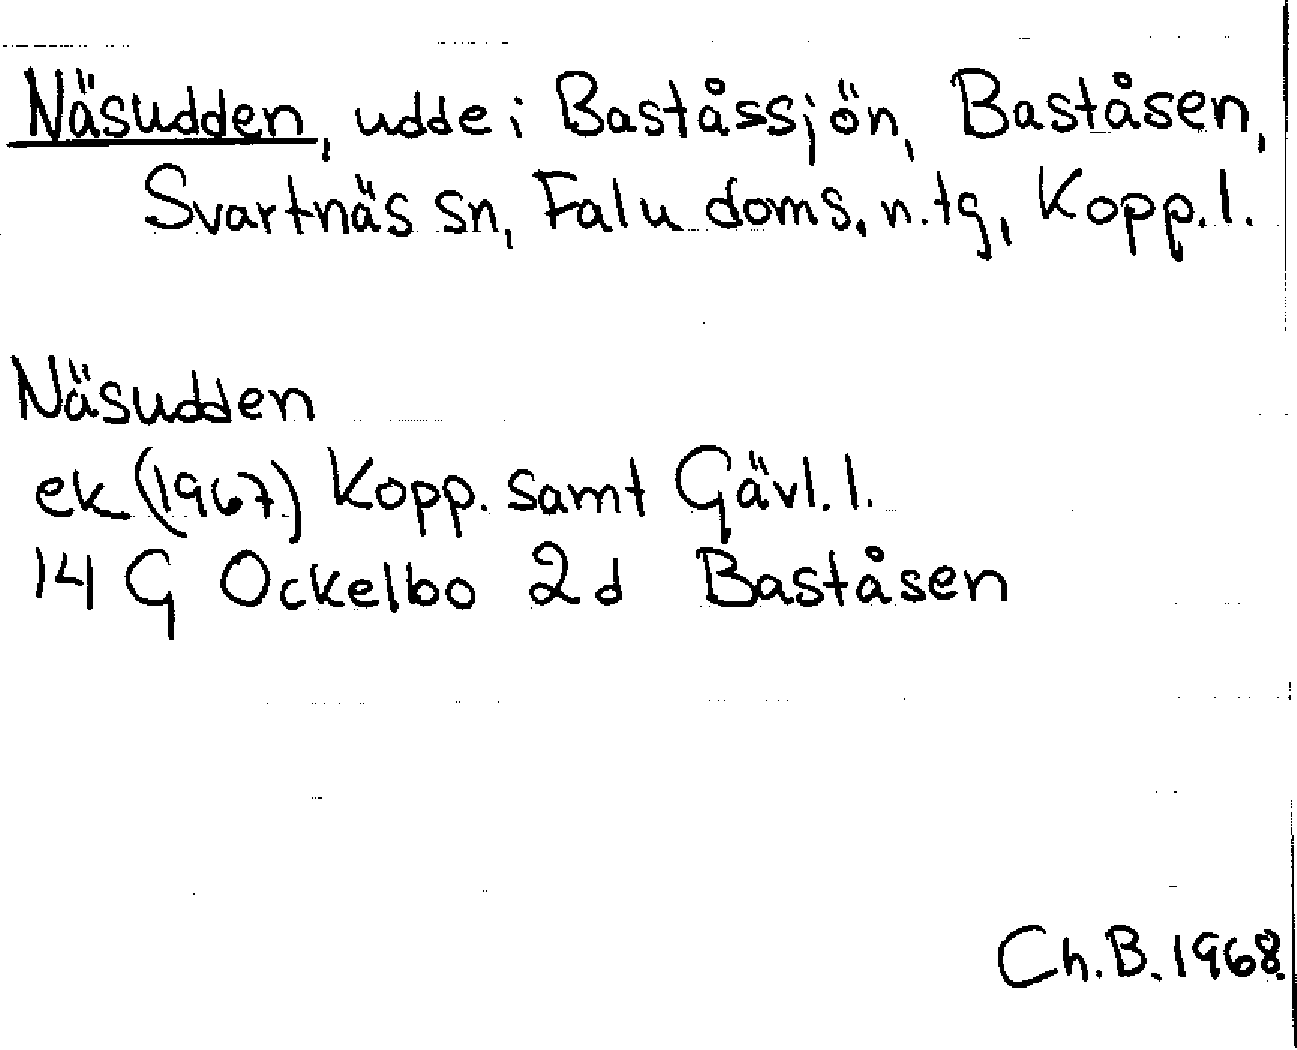 Näsudden, udde i Baståssjön, Baståsen,
Svartnäs sn, Falu doms. n. tg, Kopp. l.
Näsudden
ek (1967) Kopp. samt Gävl. l.
14 G Ockelbo 2d Baståsen
Ch. B. 1968.